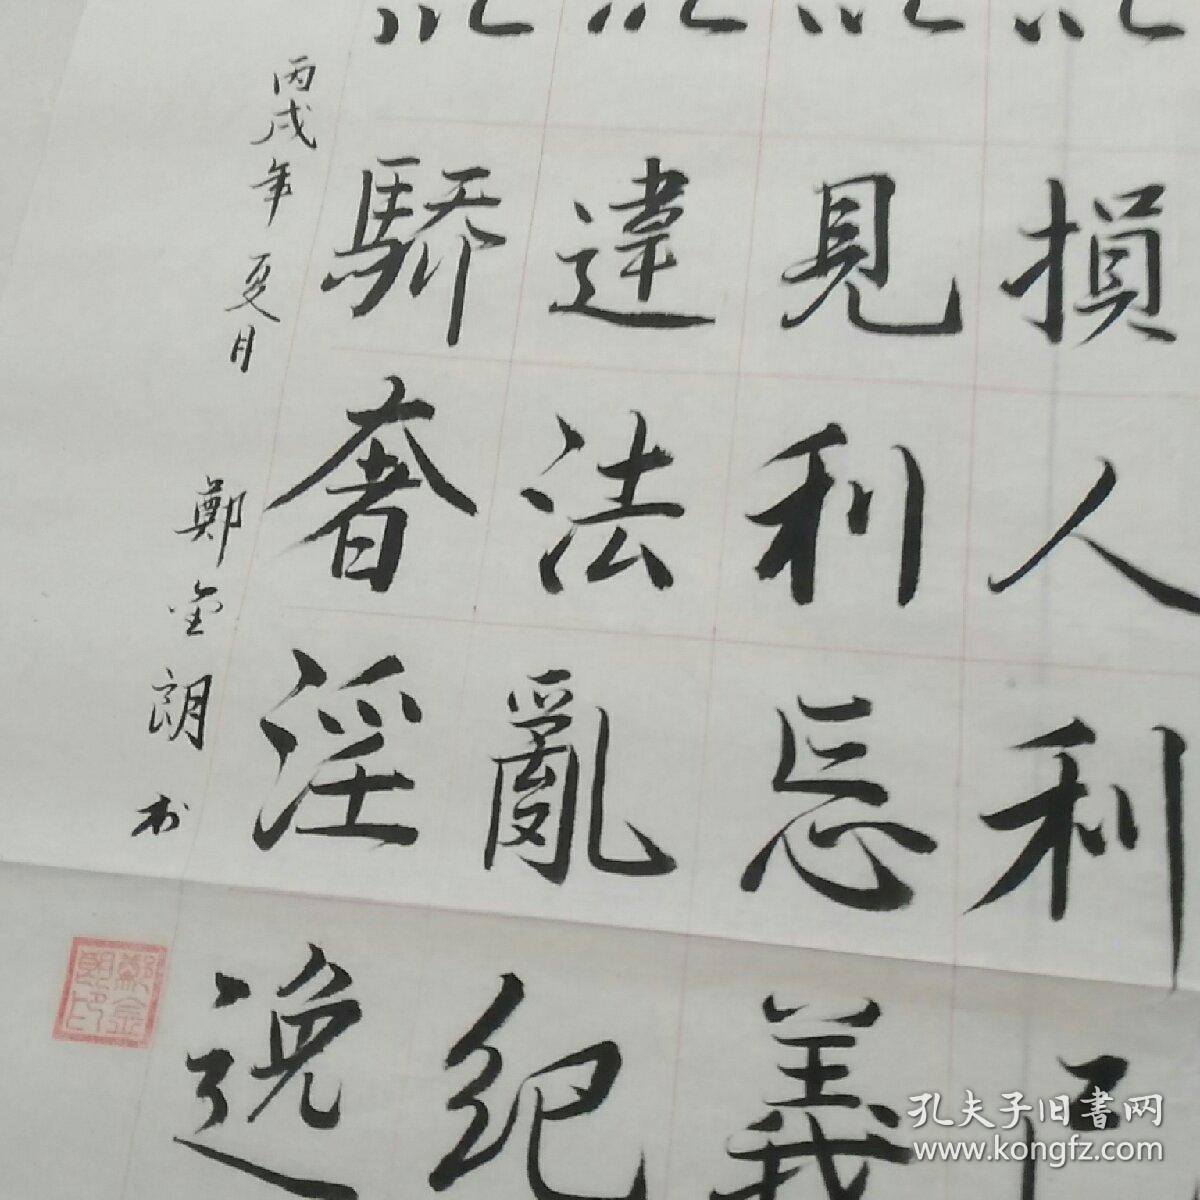 損人利己
見利忘義
違法亂紀
驕奢淫逸
丙戌年夏月
鄭金朗书
鄭金朗印
孔夫子旧書网
www.kongfz.com